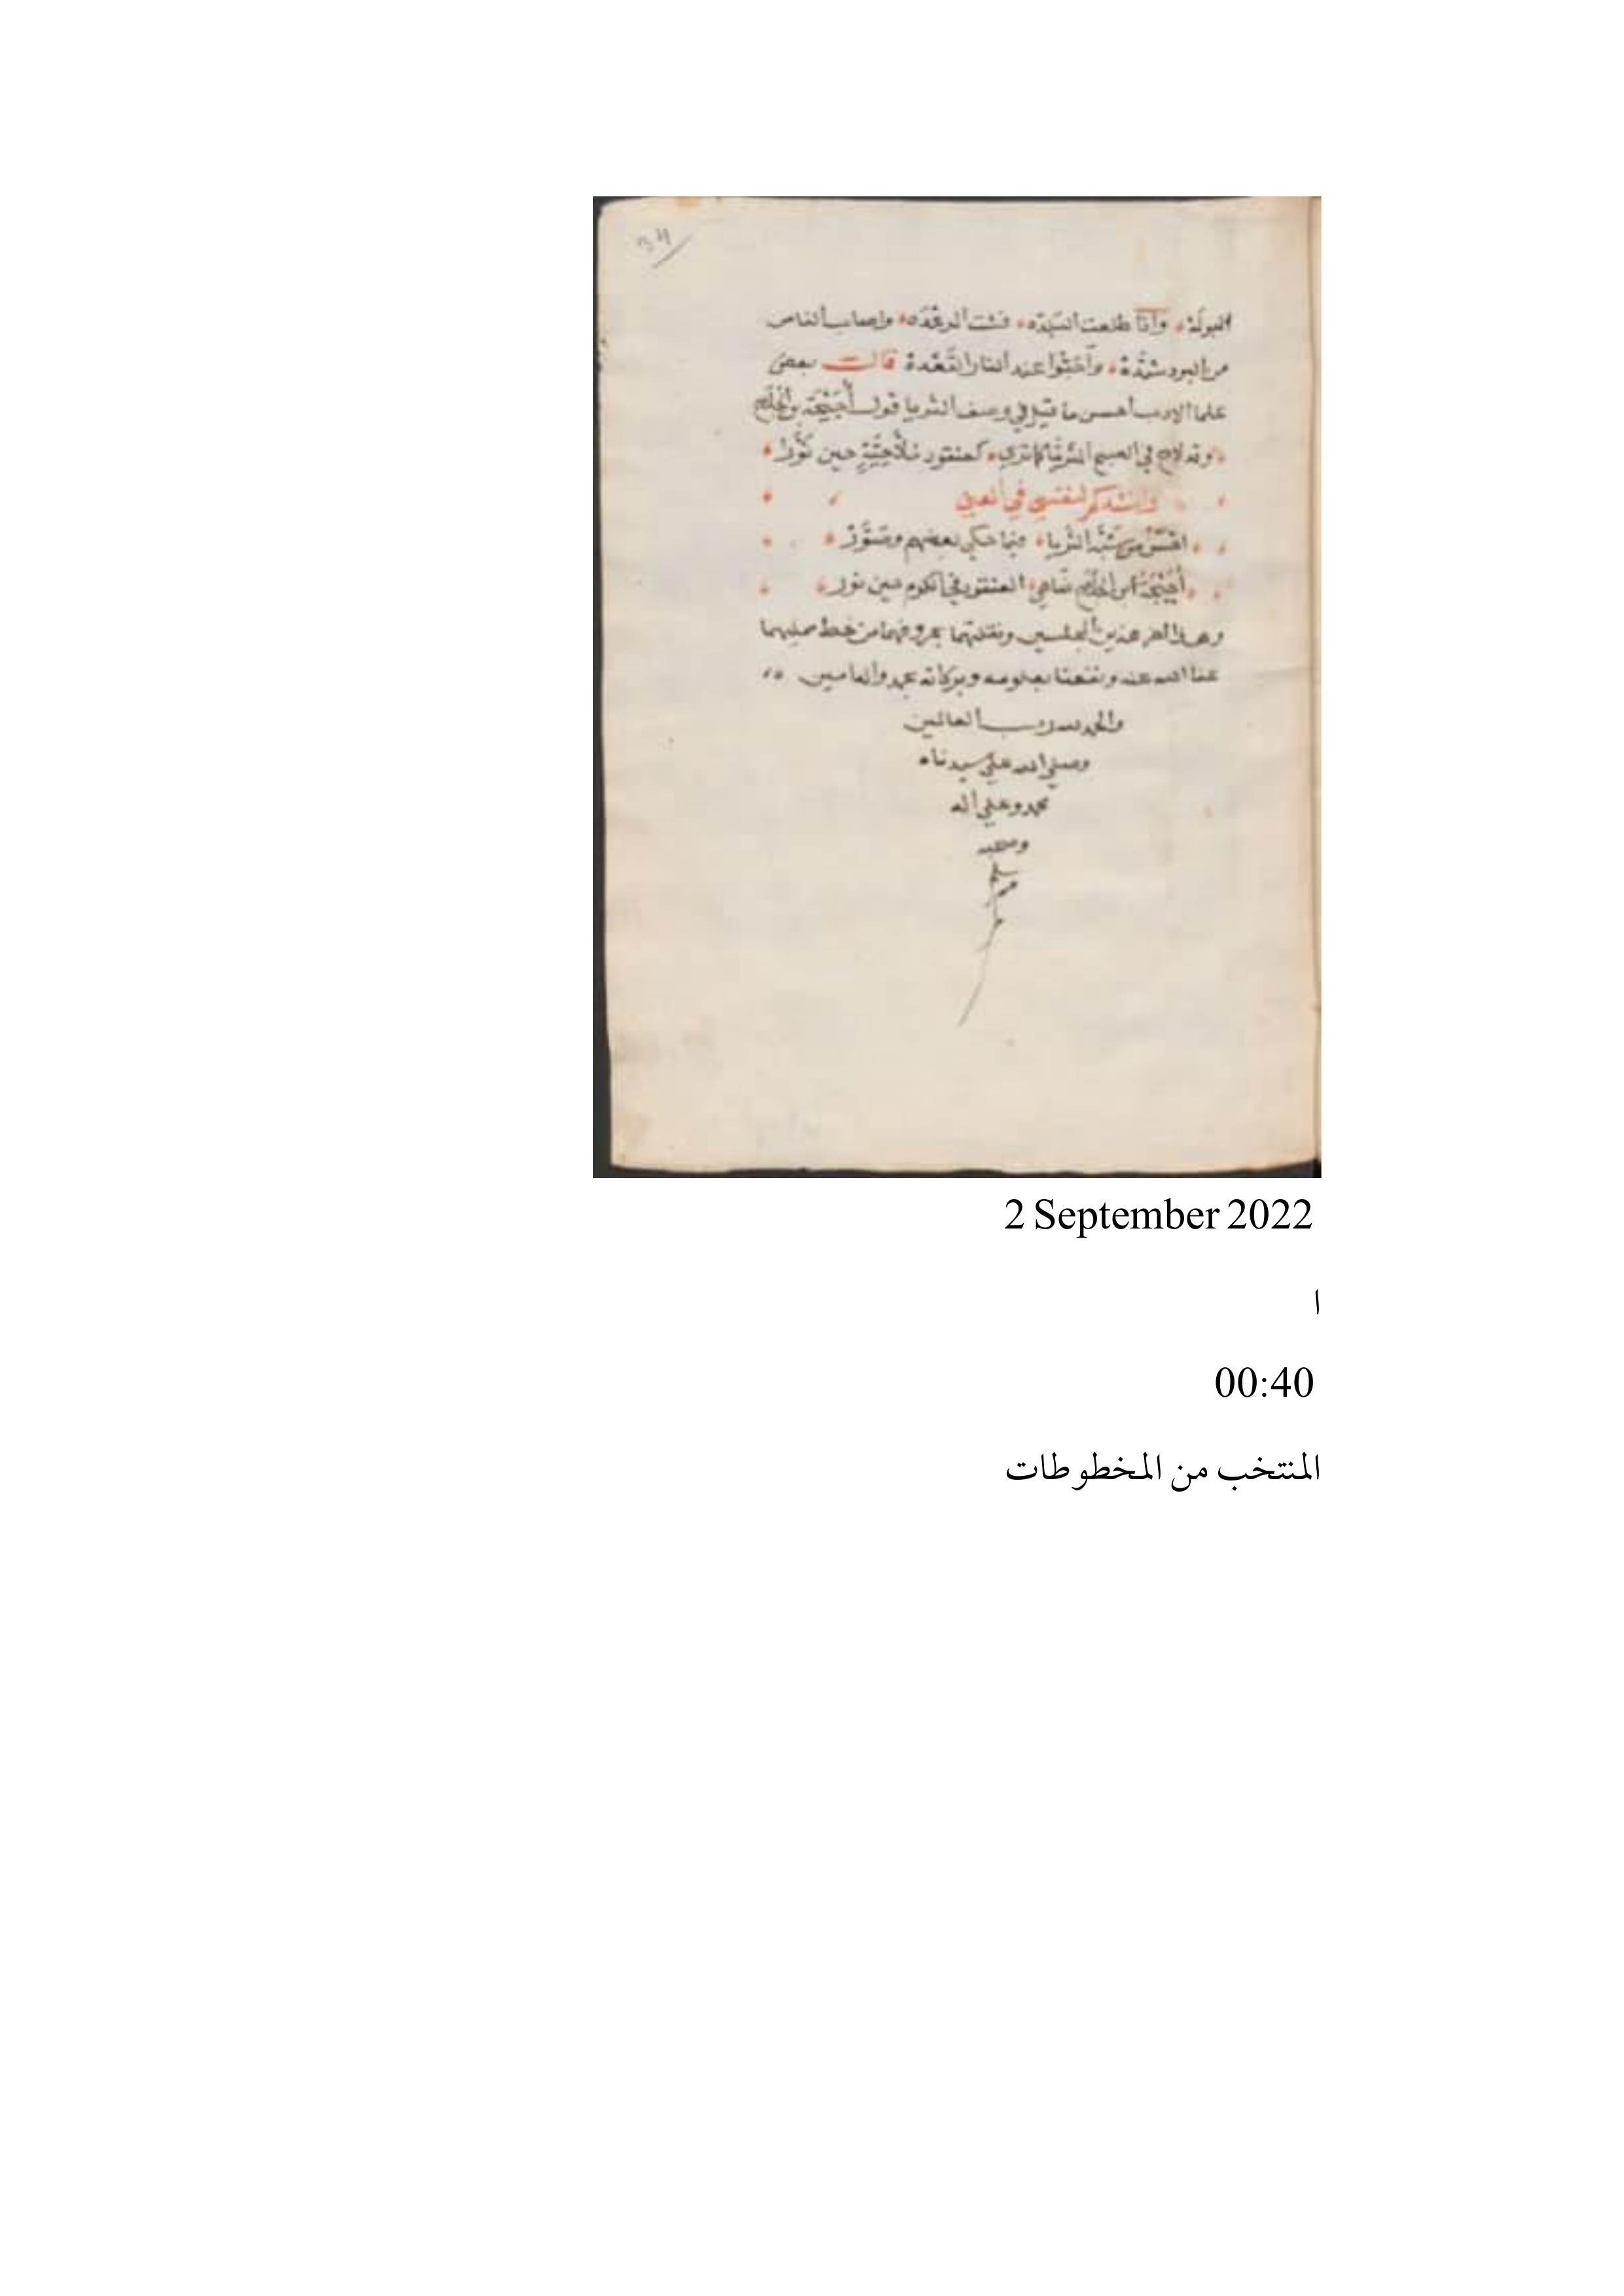 وإذا طلعت البلدة فشت الرعدة وأصاب الناس
من البرد شدة عند النار القعدة قالت بعض
علما الادب احسن ما قيل في وصف الثريا قول أُحَيْحَة بن الجُلَاح
وقد لاح في الصبح الثريا كما ترى كعنقود مُلَّاحِيَّةٍ حين نَوَّرَ
لنفسي في المعنى
شَبَّه الثريا فيما حكى بعضهم
أُحَيْحَة ابن الجُلَاح العنقود في الكرم حين نور
وهذا اخر هذين المجلسين ونقلتهما بحروفهما من خط ممليهما
عفا الله عنه ونفعنا بعلومه وبركاته
والحمد لله رب العالمين
وصلى الله على سيدنا
محمد وعلى اله
وصحبه
وسلم
2 September 2022
ا
00:40
المنتخب من المخطوطات